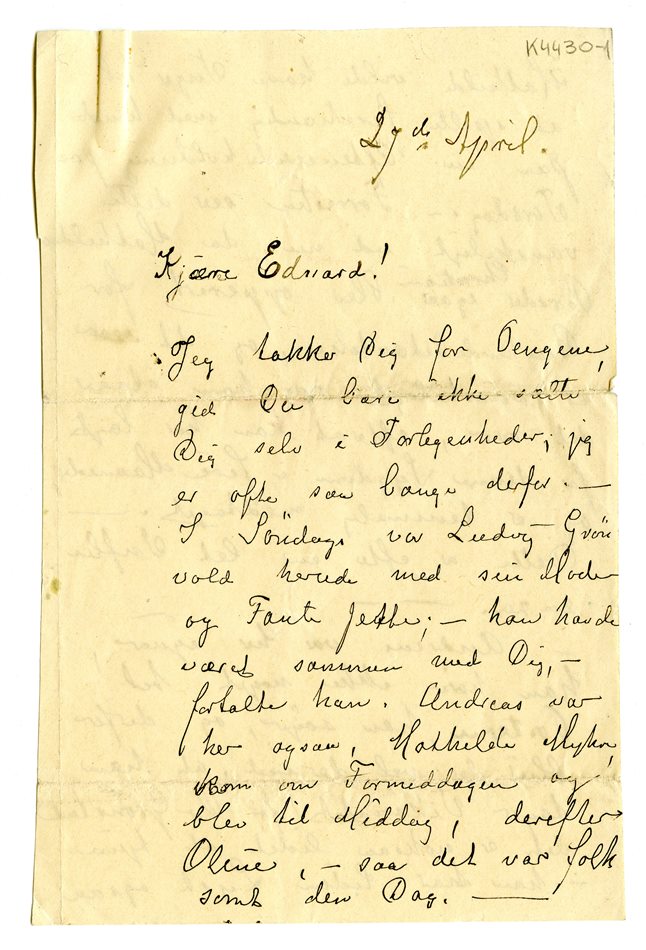 K4430-1
27de April.
Kjære Edvard!
Jeg takker Dig for Pengene,
gid Du bare ikke sætte
Dig selv i Forlegenheder; jeg
er ofte saa bange derfor. —
I Söndags var Ludvig Grön
vold herude med sin Moder
og Tante Jette; — han havde
været sammen med Dig, —
fortalte han. Andreas var
her ogsaa, Mathilde
kom om Formiddagen og
blev til Middag, derefter
Oline, — saa det var folk
somt den Dag. —